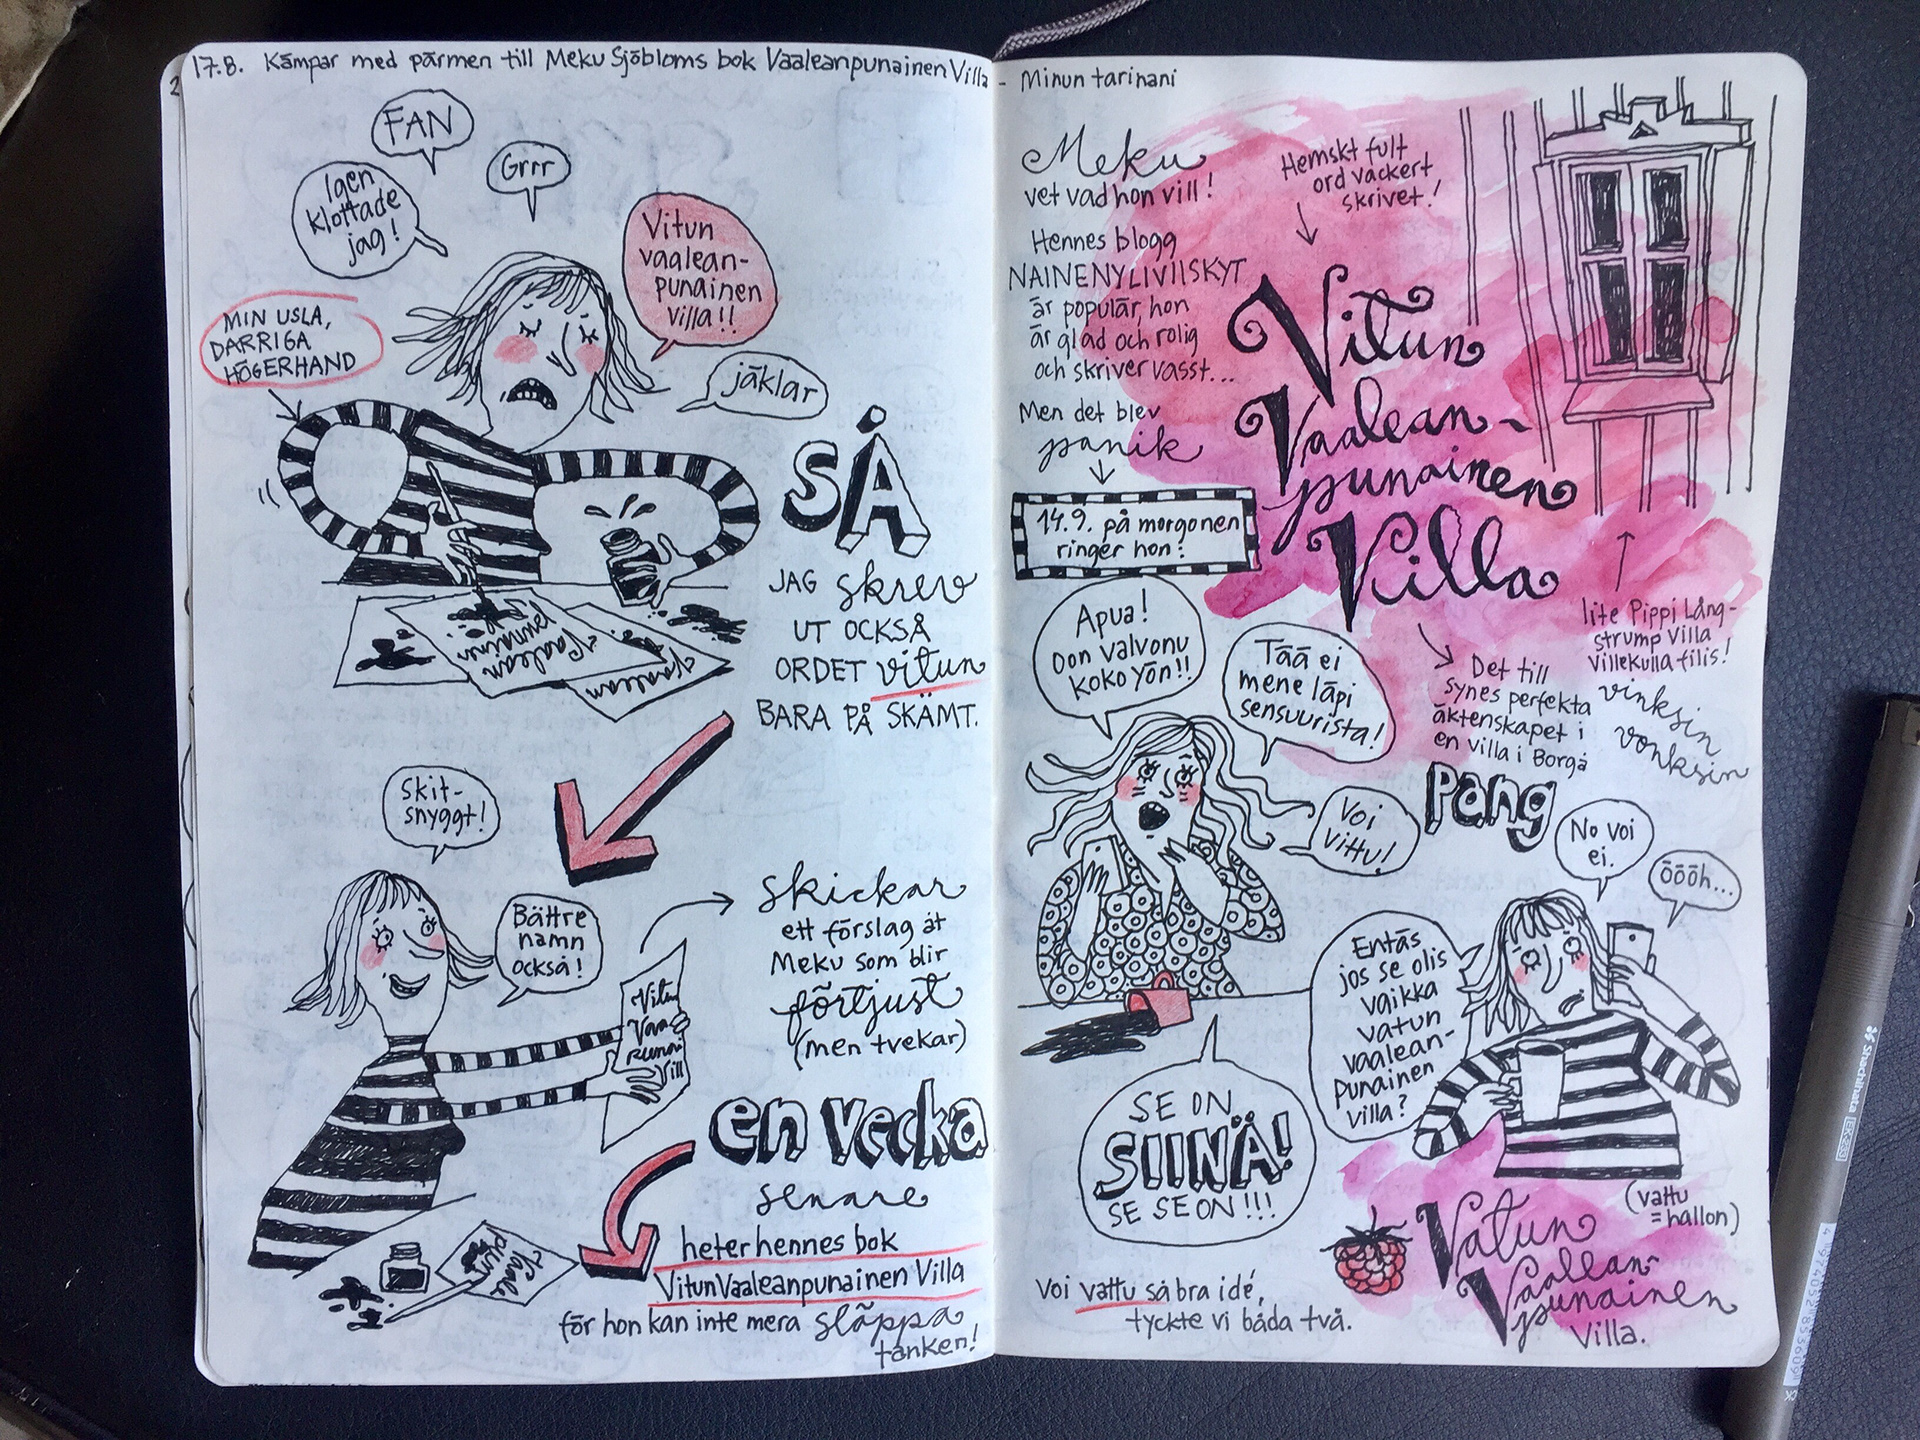 17.8. Kämpar med pärmen till Meku Sjöbloms bok Vaaleanpunainen Villa - Minun tarinani
FAN
Grrr
Igen
klottade
jag!
Vitun
vaalean-
punainen
villa!!
MIN USLA,
DARRIGA
HÖGERHAND
jäklar
SÅ
JAG skrev
UT OCKSÅ
ORDET vitun
BARA PÅ SKÄMT.
Vaalean
punainen
Vaalean
Skit-
snyggt!
Bättre
namn
också!
Vitun
Vaa
punai
Vill
skickar
ett förslag åt
Meku som blir
förtjust
(men tvekar)
en vecka
senare
heter hennes bok
VitunVaaleanpunainen Villa
för hon kan inte mera släppa
tanken!
Vaale
pun
Meku
vet vad hon vill!
Hennes blogg
NAINENYLIVIISKYT
är populär, hon
är glad och rolig
och skriver vasst...
Men det blev
panik
14.9. på morgonen
ringer hon:
Hemskt fult
ord vackert
skrivet!
Vitun
Vaalean-
punainen
Villa
lite Pippi Lång-
strump Villa
Villekulla tilis!
vinksin
vonksin
Det till
synes perfekta
äktenskapet i
en villa i Borgå
Apua!
Oon valvonu
koko yön!!
Tää ei
mene läpi
sensuurista!
Voi
vittu!
pang
No voi
ei.
ööö​h...
Entäs
jos se olis
vaikka
vatun
vaalean-
punainen
villa?
SE ON
SIINÄ!
SE SE ON!!!
(vattu
=hallon)
Vatun
Vaalean-
punainen
Villa.
Voi vattu så bra idé,
tyckte vi båda två.
sxachihata
4 974052 853609